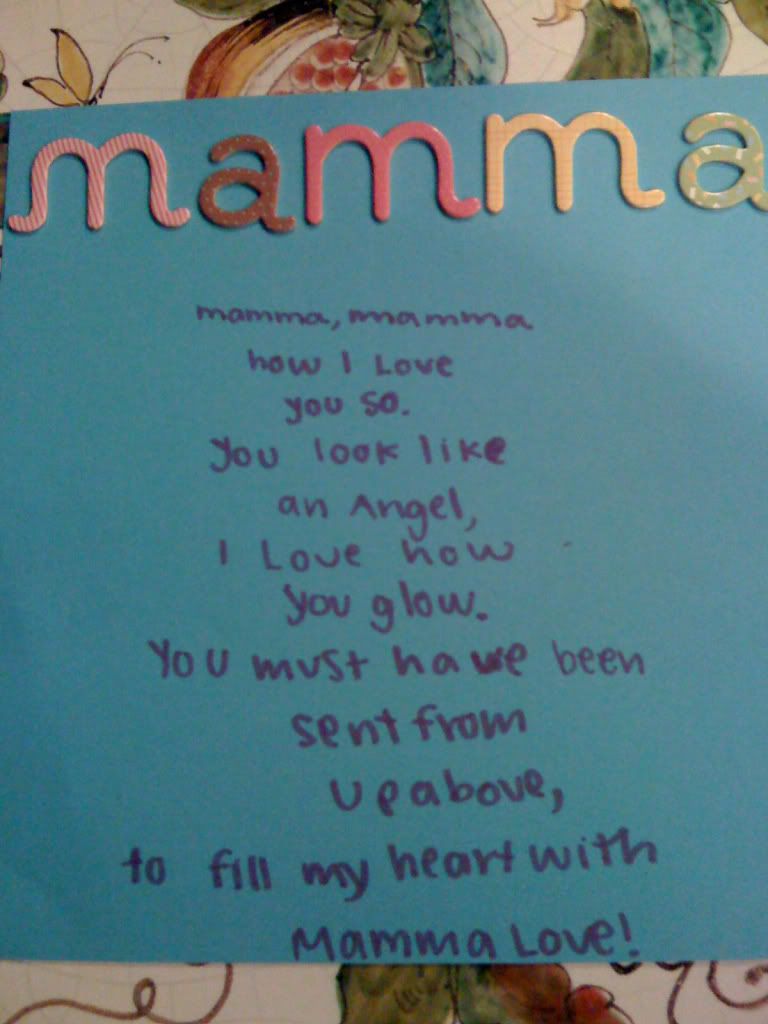 mamma
mamma, mamma
how I Love
you so.
You look like
an Angel,
I Love how
you glow.
You must have been
sent from
up above,
to fill my heart with
Mamma Love!